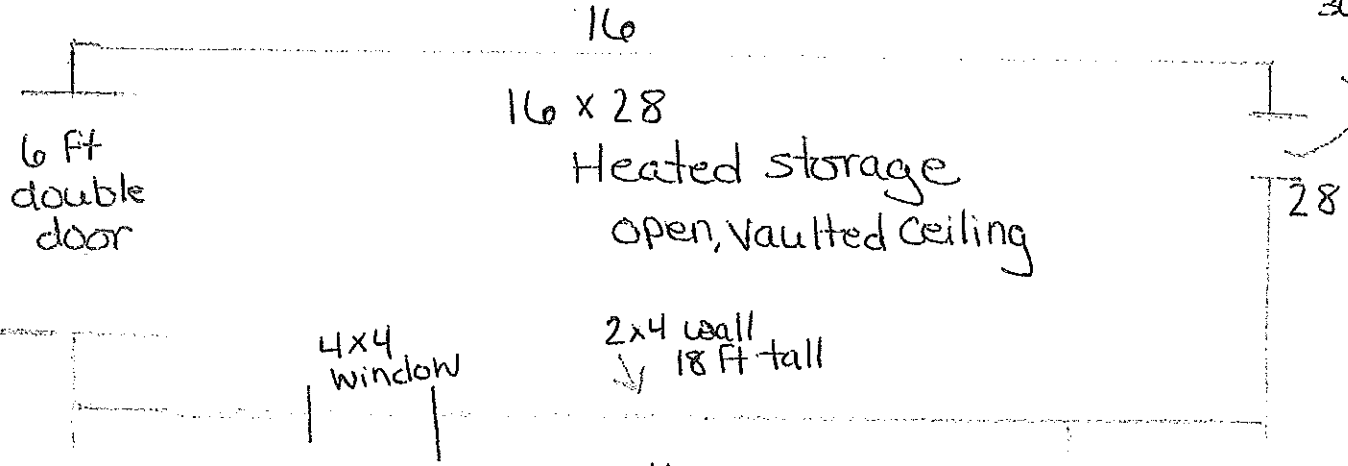 16
16 x 28
Heated storage
open, vaulted ceiling
6 ft
double
door
28
4x4
window
2x4 wall
18 ft tall